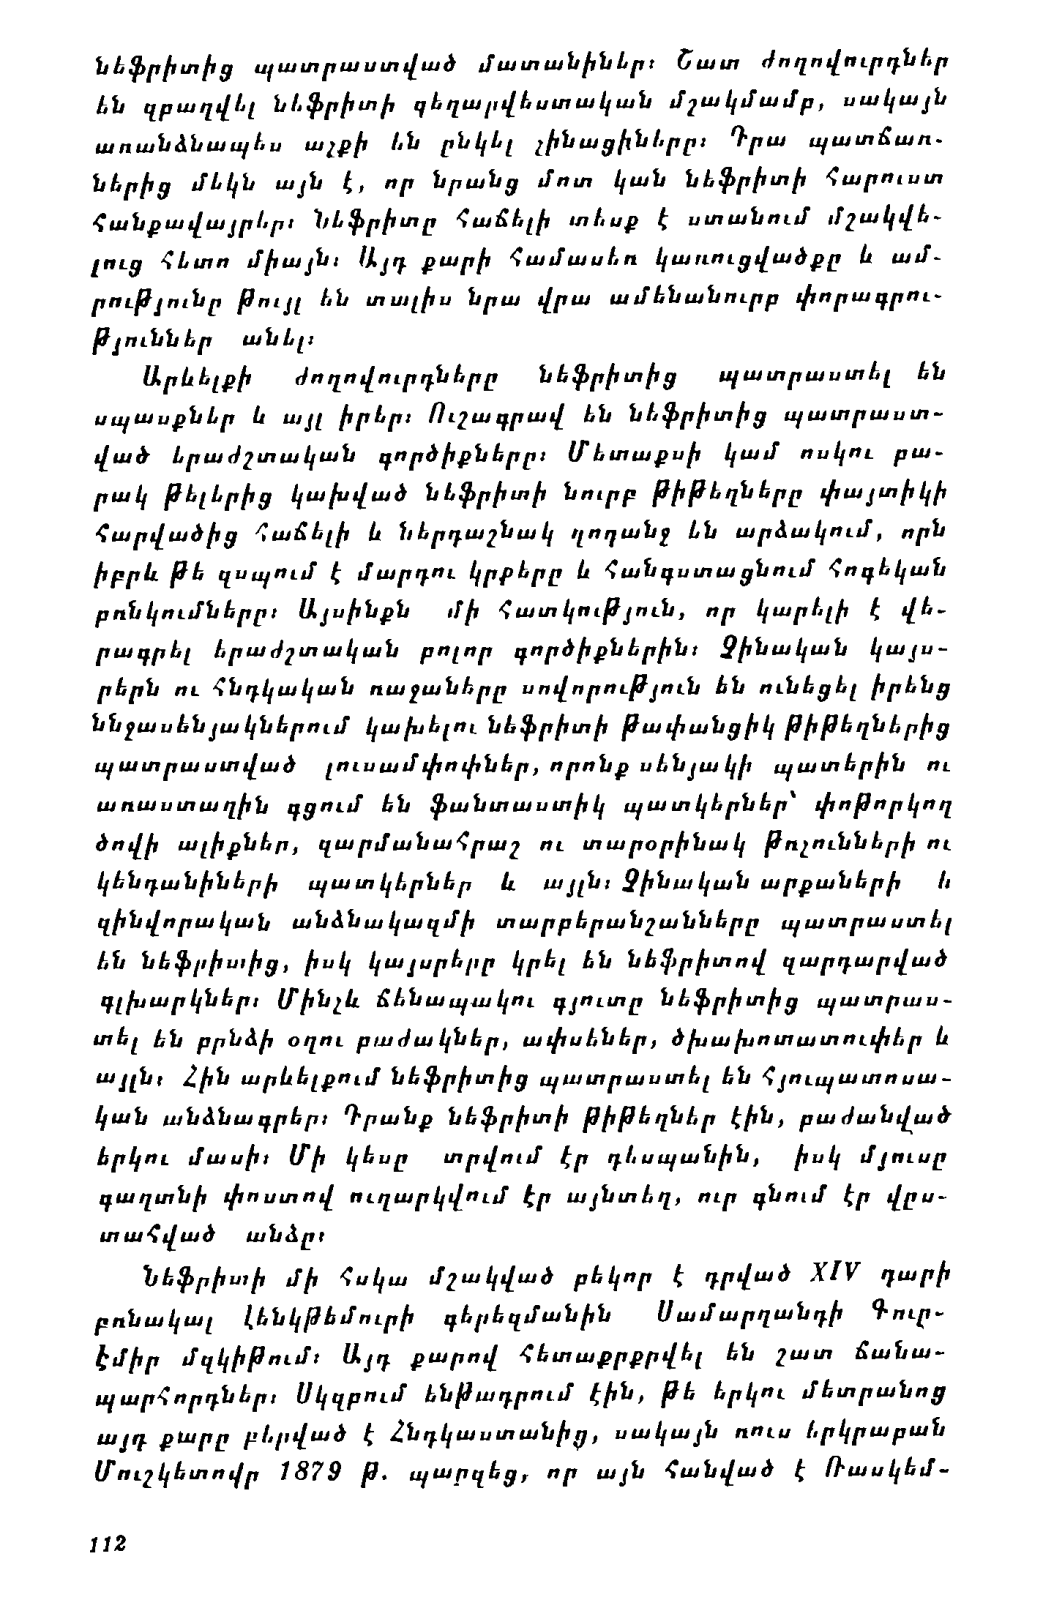 նեֆրիտից պատրաստված մատանիներ։ Շատ ժողովուրդներ
են զբաղվել նեֆրիտի գեղարվեստական մշակմամբ, սակայն
առանձնապես աչքի են ընկել չինացիները։ Դրա պատճառ-
ներից մեկն այն է, որ նրանց մոտ կան նեֆրիտի հարուստ
հանքավայրեր։ Նեֆրիտը հաճելի տեսք է ստանում մշակվե-
լուց հետո միայն։ Այդ քարի համասեռ կառուցվածքը և ամ-
րությունը թույլ են տալիս նրա վրա ամենանուրբ փորագրու-
թյուններ անել։
Արևելքի ժողովուրդները նեֆրիտից պատրաստել են
սպասքներ և այլ իրեր։ Ուշագրավ են նեֆրիտից պատրաստ-
ված երաժշտական գործիքները։ Մետաքսի կամ ոսկու բա-
րակ թելերից կախված նեֆրիտի նուրբ թիթեղները փայտիկի
հարվածից հաճելի և ներդաշնակ ղողանջ են արձակում, որն
իբրև թե զսպում է մարդու կրքերը և հանգստացնում հոգեկան
բռնկումները։ Այսինքն մի հատկություն, որ կարելի է վե-
րագրել երաժշտական բոլոր գործիքներին։ Չինական կայս-
րերն ու հնդկական ռաջաները սովորություն են ունեցել իրենց
ննջասենյակներում կախելու նեֆրիտի թափանցիկ թիթեղներից
պատրաստված լուսամփոփներ, որոնք սենյակի պատերին ու
առաստաղին գցում են ֆանտաստիկ պատկերներ՝ փոթորկող
ծովի ալիքներ, զարմանահրաշ ու տարօրինակ թռչունների ու
կենդանիների պատկերներ և այլն։ Չինական արքաների և
զինվորական անձնակազմի տարբերանշանները պատրաստել
են նեֆրիտից, իսկ կայսրերը կրել են նեֆրիտով զարդարված
գլխարկներ։ Մինչև ճենապակու գյուտը նեֆրիտից պատրաս-
տել են բրնձի օղու բաժակներ, ափսեներ, ծխախոտատուփեր և
այլն։ Հին արևելքում նեֆրիտից պատրաստել են հյուպատոսա-
կան անձնագրեր։ Դրանք նեֆրիտի թիթեղներ էին, բաժանված
երկու մասի։ Մի կեսը տրվում էր դեսպանին, իսկ մյուսը
գաղտնի փոստով ուղարկվում էր այնտեղ, ուր գնում էր վըս-
տահված անձը։
Նեֆրիտի մի հսկա մշակված բեկոր է դրված XIV դարի
բռնակալ Լենկթեմուրի գերեզմանին Սամարղանդի Գուր-
Էմիր մզկիթում։ Այդ քարով հետաքրքրվել են շատ ճանա-
պարհորդներ։ Սկզբում ենթադրում էին, թե երկու մետրանոց
այդ քարը բերված է Հնդկաստանից, սակայն ռուս երկրաբան
Մուշկետովը 1879 թ. պարզեց, որ այն հանված է Ռասկեմ-
112